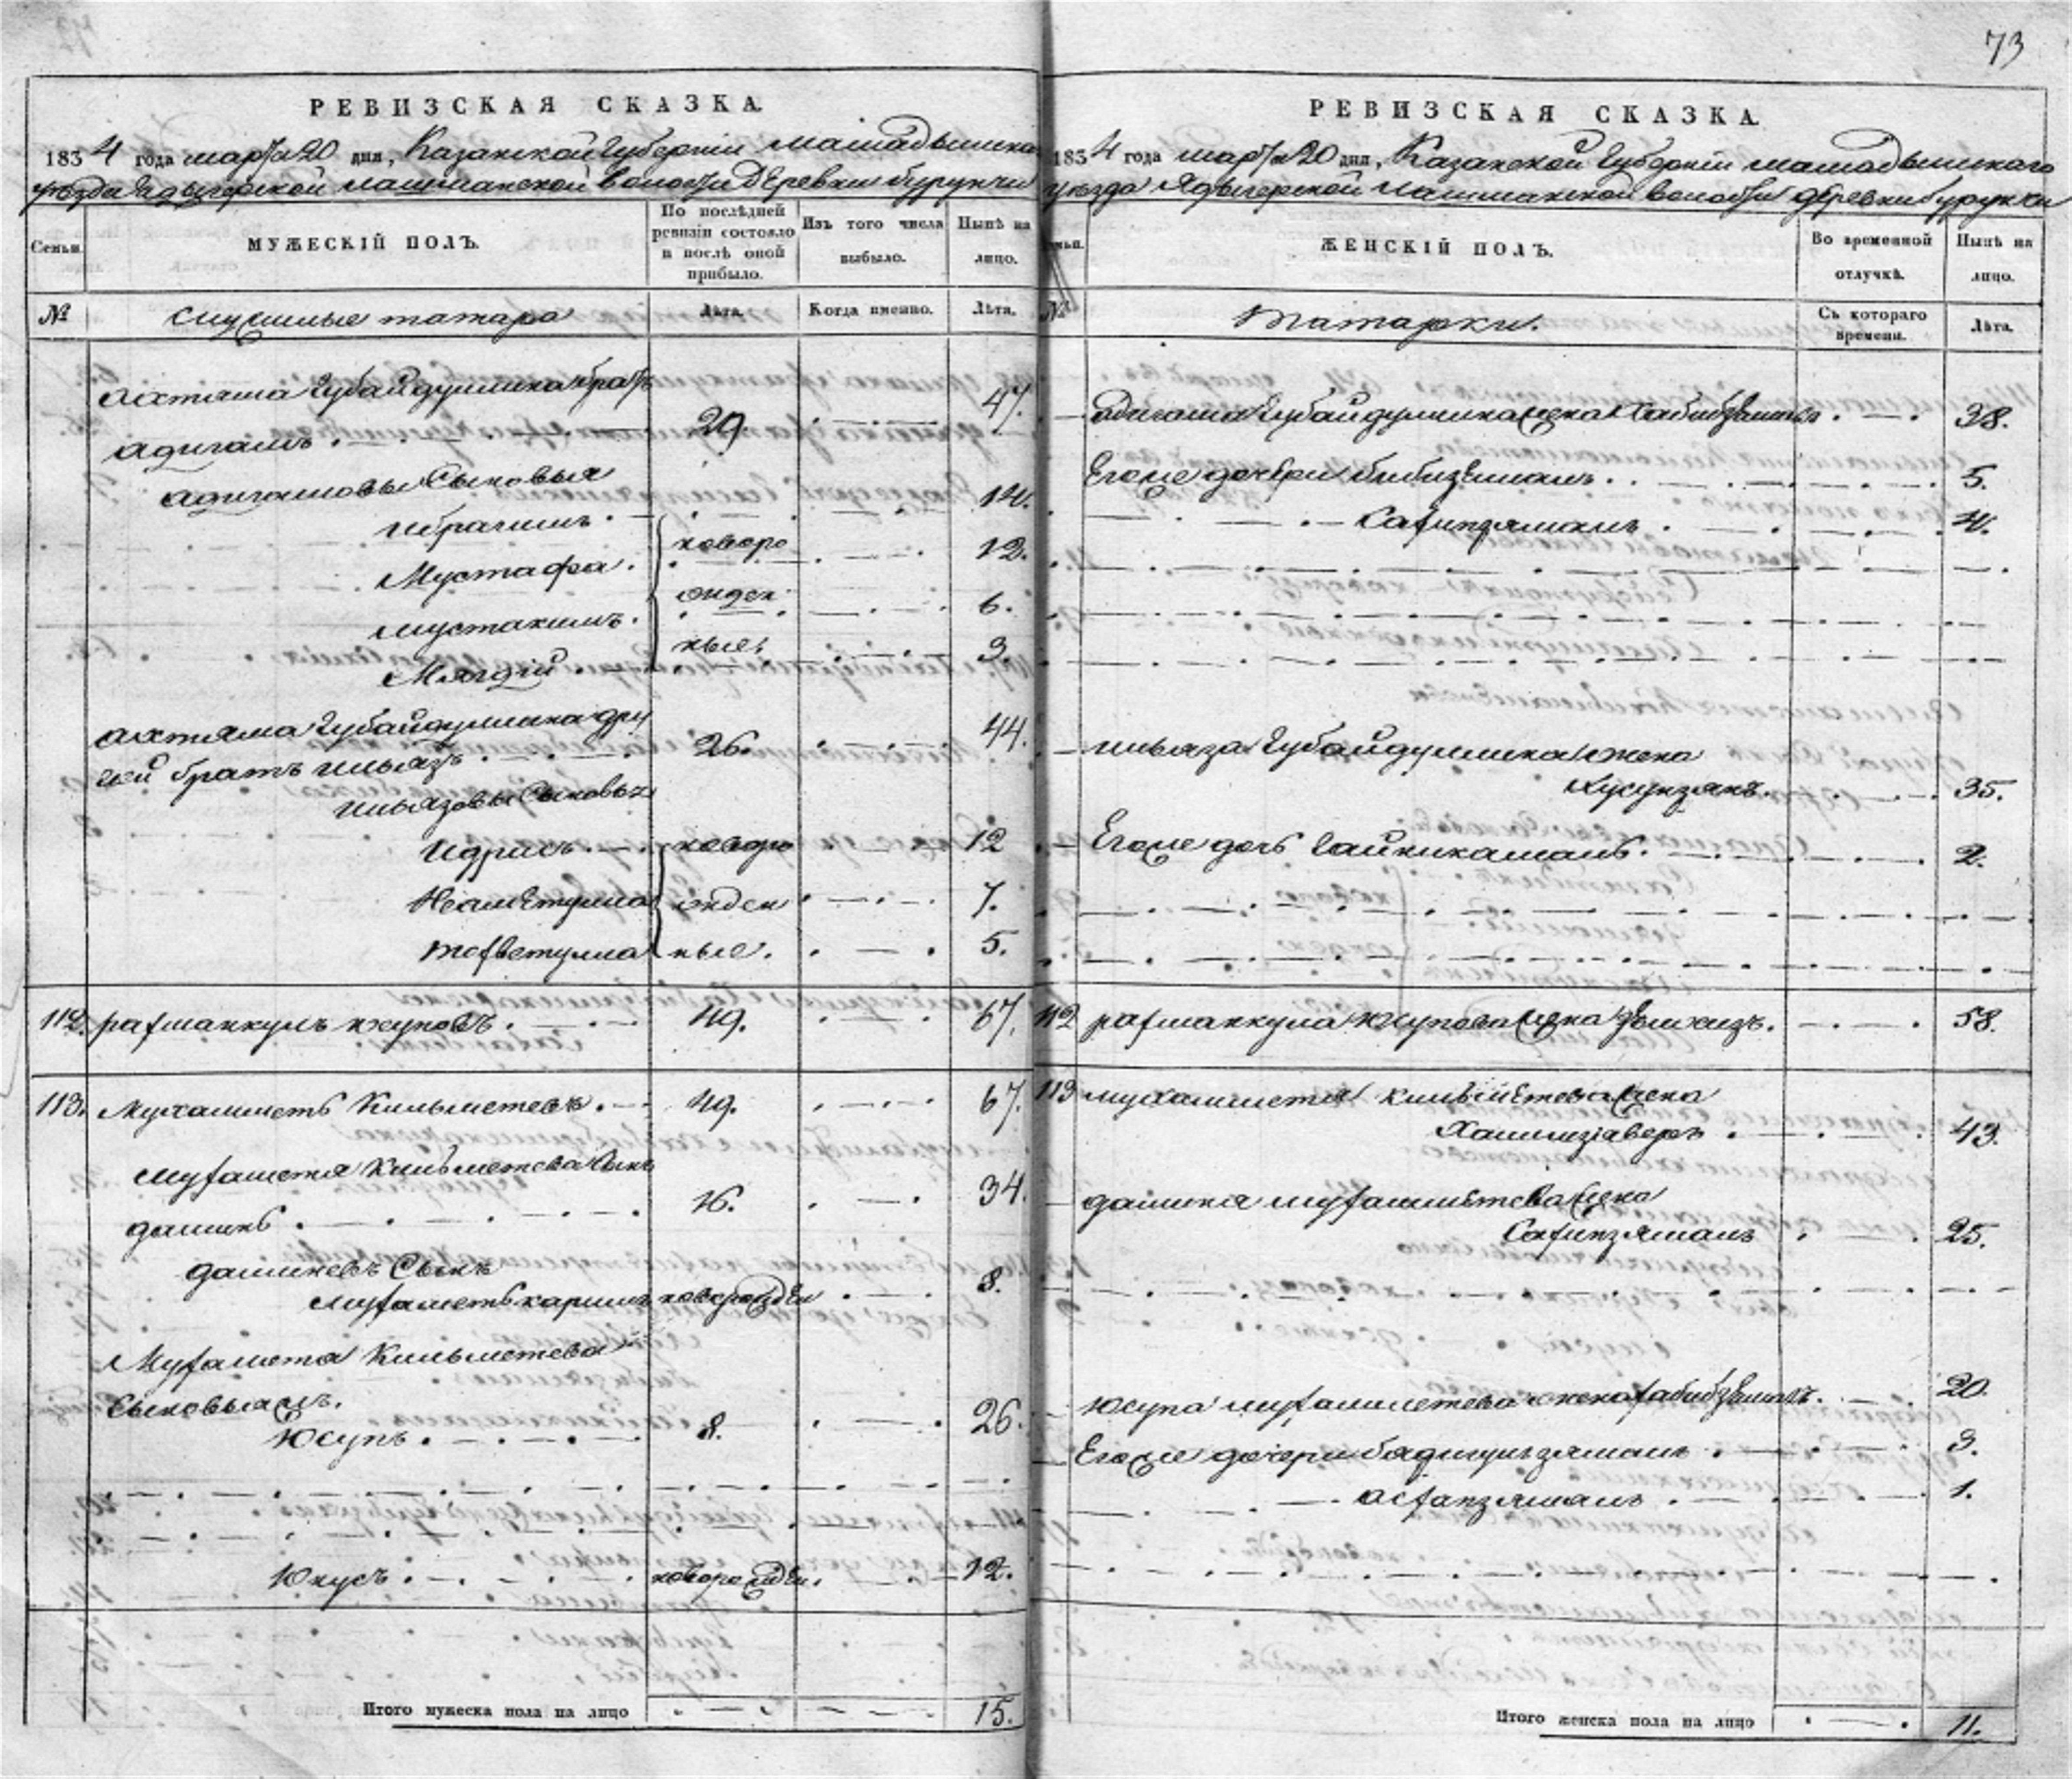 73
РЕВИЗСКАЯ СКАЗКА.
1834 года марта 20 дня, Казанской Губернии Мамадышска
уезда Ядыгерской лашманской волости Деревни бурунчи
Семьи.
МУЖЕСКІЙ ПОЛЪ.
По послѣдней ревизіи состояло и послѣ оной прибыло.
Изъ того числа выбыло.
Нынѣ на лицо.
№
служилые татара
Лѣта.
Когда именно.
Лѣта.
Ахтяма Губайдуллина братъ
адигамъ 29. 47.
адигамовы Сыновья
Ибрагимъ 14.
Мустафа новоро 12.
Мустакимъ жден 6.
Мягдій ные 3
Ахтяма Губайдуллина дру
гой братъ Ильязъ 26. 44.
Ильязовы Сыновья
Идрисъ новоро 12
Неаметулла жден 7.
тофветулла ные. 5.
112. рахманкулъ юсуповъ 49. 67.
113. Мухамметь Кильметевъ 49. 67.
Мухаметя Кильметева Сынъ
даминь 16. 34.
даминевъ Сынъ
Мухаметькаримъ новорожден 8.
Мухамета Кильметева
Сыновья жъ.
Юсупъ 8. 26.
Юнусъ новорожден. 12.
Итого мужеска пола на лицо 15.
РЕВИЗСКАЯ СКАЗКА.
1834 года марта 20 дня, Казанской Губернии мамадышскаго
уезда Ядыгерской лашманской волости деревни бурунчи
№
ЖЕНСКІЙ ПОЛЪ.
Во временной отлучкѣ.
Нынѣ на лицо.
татарки.
Съ котораго времени.
Лѣта.
адигама Губайдуллина жена Хабибземалъ 38.
Егоже дочери бибизямалъ 5.
Сахипзямалъ 4.
ильяза Губайдуллина жена
Хусунзянъ. 35.
Егоже дочь Гайникамалъ. 2.
112 рахманкула юсупова жена 58.
113 мухамметя кильметева жена
43.
даминя мухамметева жена
Сахипзямалъ 25.
юсупа мухамметева жена хабибземалъ. 20.
Егоже дочери бадигулзямалъ 3.
асхапзямалъ 1.
Итого женска пола на лицо 11.